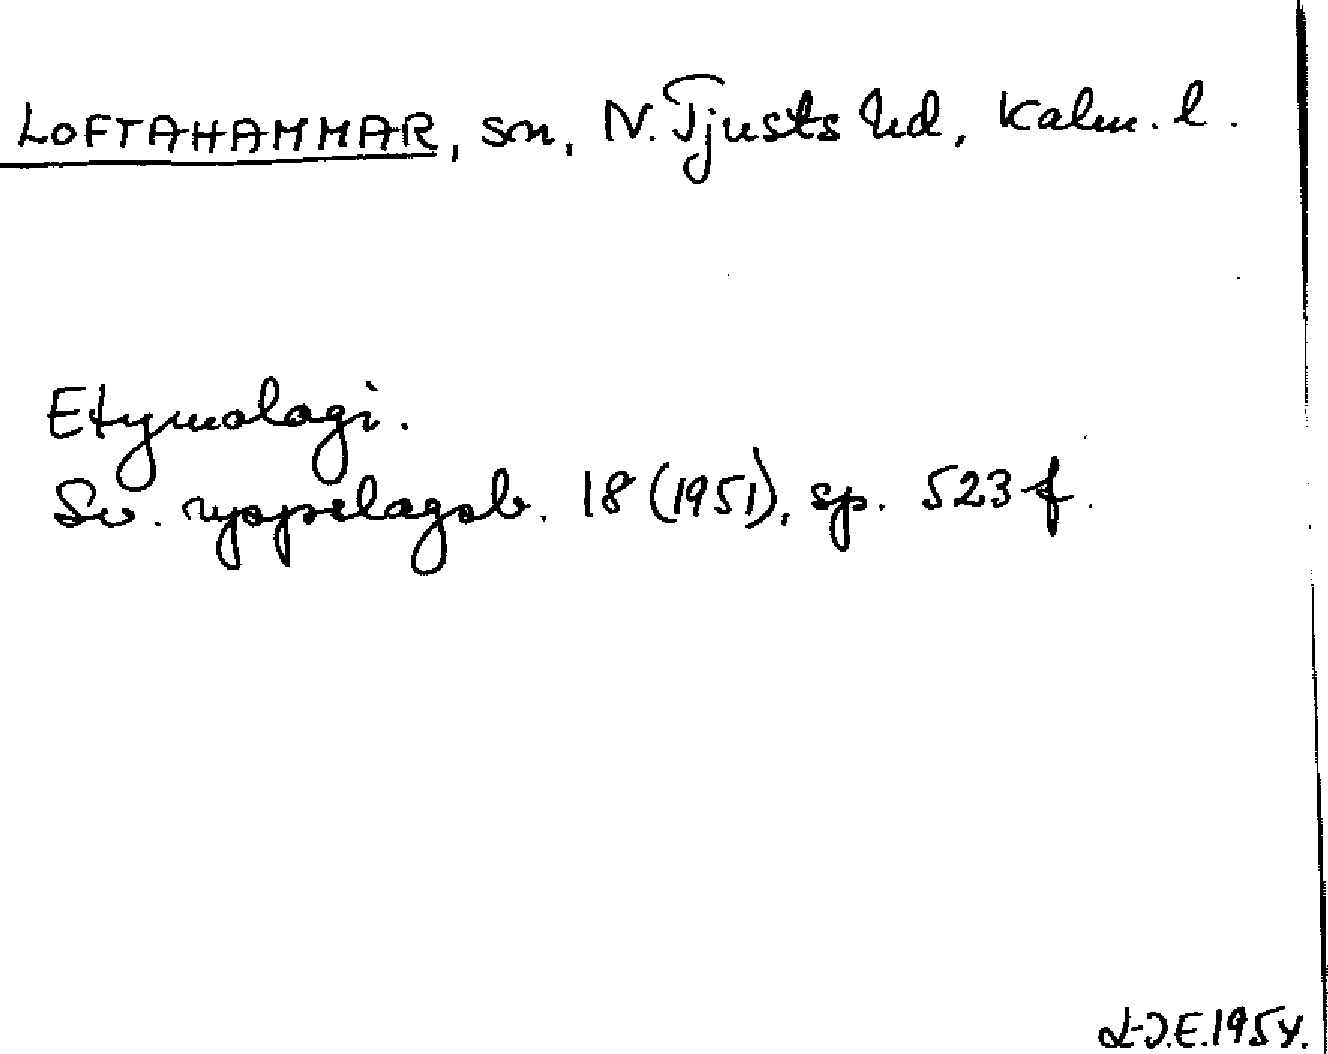 LOFTAHAMMAR, sn, N. Tjusts hd, Kalm. l.
Etymologi.
Sv. uppslagsb. 18 (1951), sp. 523 f.
L-J.E. 1954.